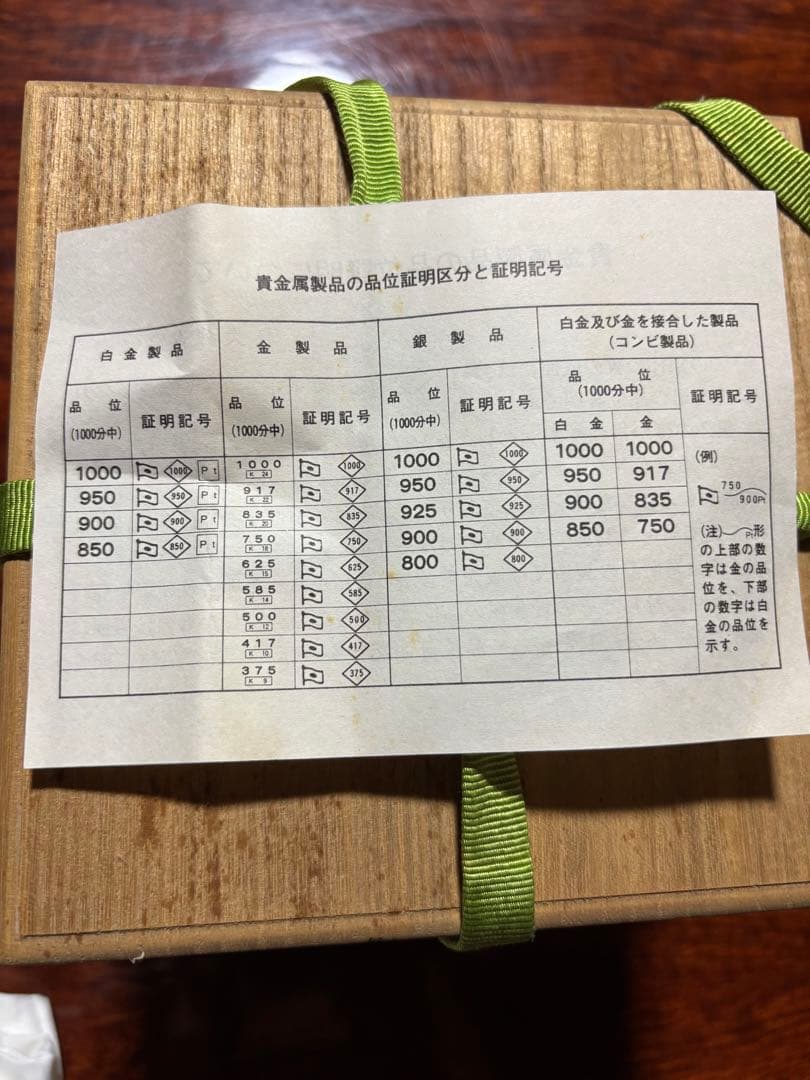 貴金属製品の品位証明区分と証明記号
白金製品 金製品 銀製品 白金及び金を接合した製品
(コンビ製品)
品位 証明記号 品位 証明記号 品位 証明記号 品位 証明記号
(1000分中) (1000分中) (1000分中) (1000分中)
白金 金
1000 1000 Pt 1000 1000 1000 1000 1000 1000 (例)
K 24
950 950 Pt 917 917 950 950 950 917 750
K 22 900Pt
900 900 Pt 835 835 925 925 900 835
K 20
850 850 Pt 750 750 900 900 850 750 (注) Pt形
K 18 の上部の数
625 625 800 800 字は金の品
K 15 位を、下部
585 585 の数字は白
K 14 金の品位を
500 500 示す。
K 12
417 417
K 10
375 375
K 9